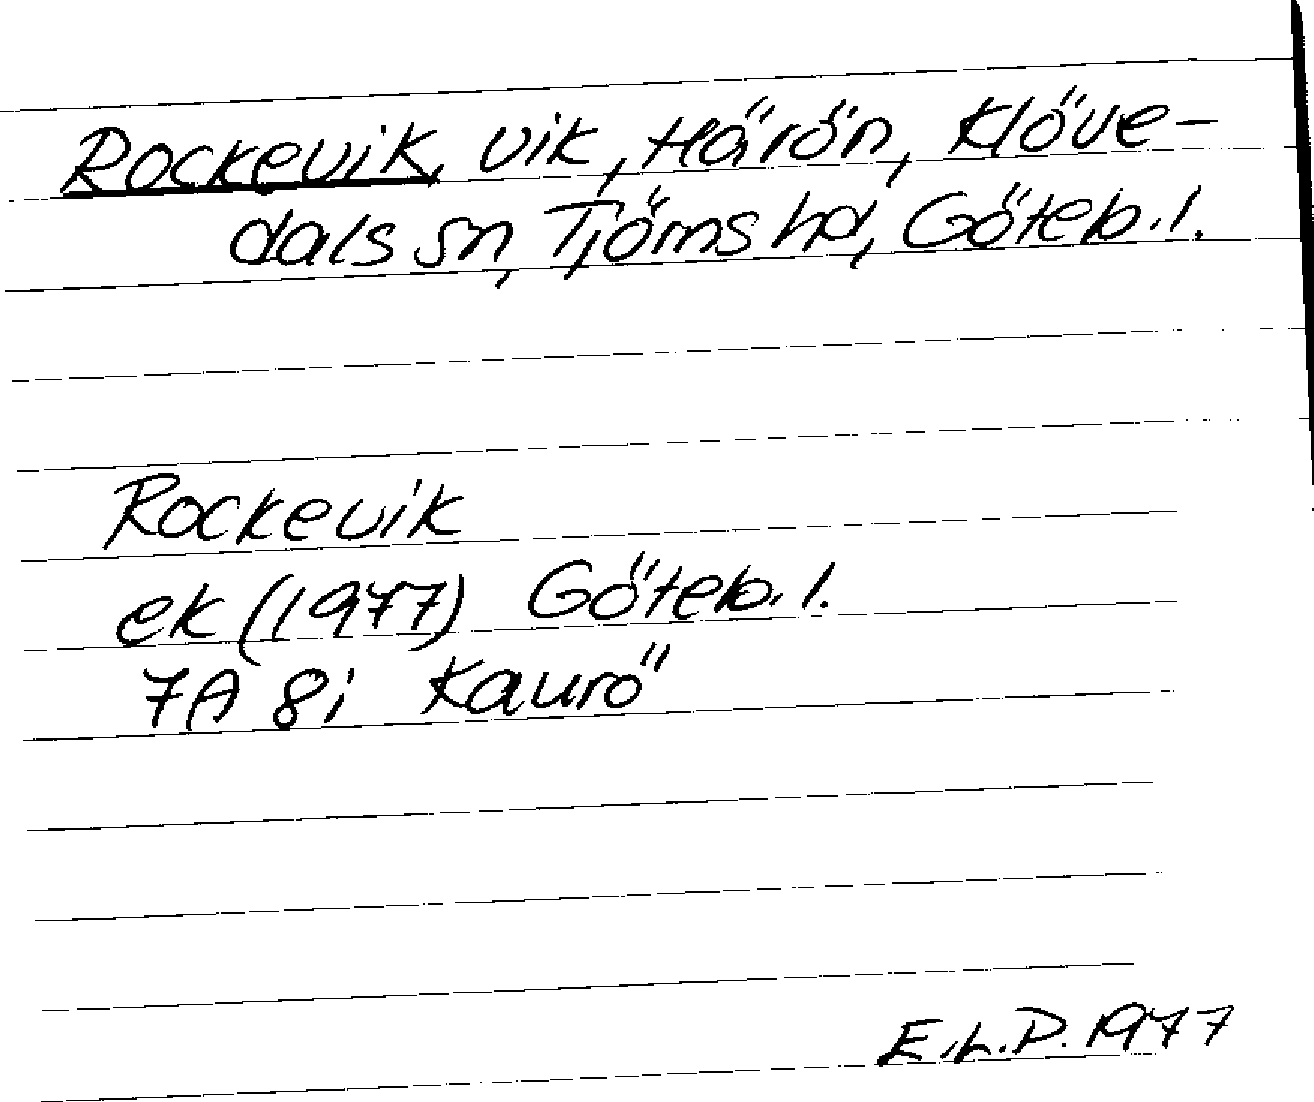 Rockevik, vik, Härön, Klöve-
dals sn, Tjörns hd, Göteb. l.
Rockevik
ek (1977) Göteb. l.
7A 8i Kavrö
E.L.P. 1977